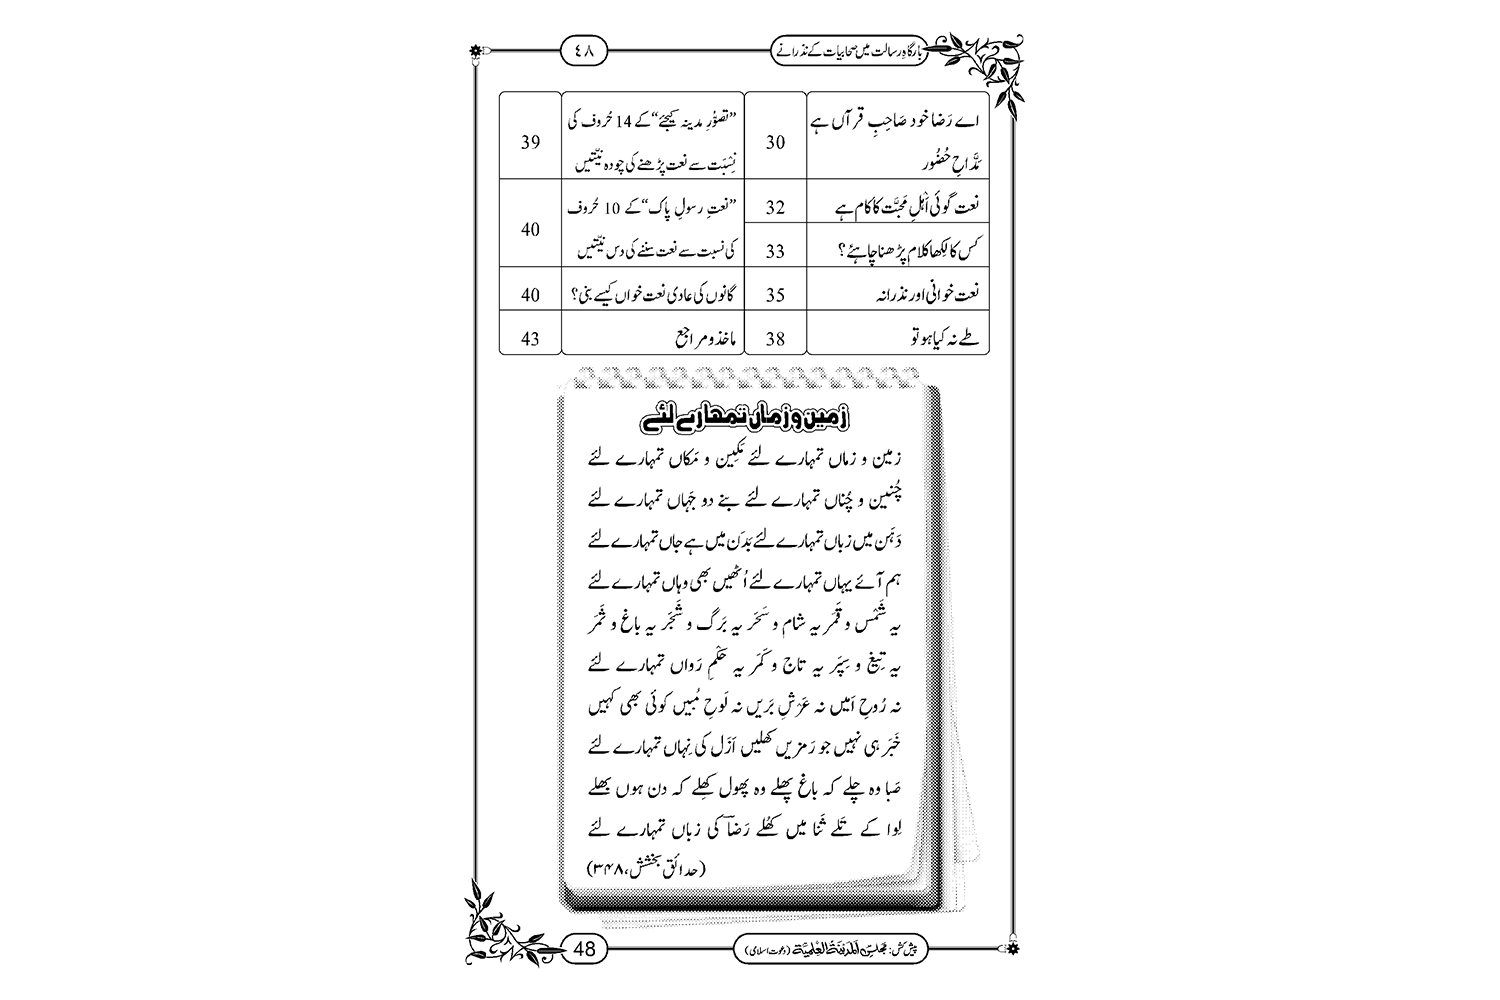 بارگاہِ رسالت میں صحابیات کے نذرانے
٤٨
اے رَضا خود صَاحِبِ قرآں ہے
مَدَّاحِ حُضُور
30
نعت گوئی اَہْلِ مَحبَّت کا کام ہے
32
کس کا لِکھا کلام پڑھنا چاہئے؟
33
نعت خوانی اور نذرانہ
35
طے نہ کیا ہو تو
38
”تصوُّرِ مدینہ کیجئے“ کے 14 حُروف کی
نِسْبَت سے نعت پڑھنے کی چودہ نیّتیں
39
”نعتِ رسولِ پاک“ کے 10 حُروف
کی نسبت سے نعت سننے کی دس نیّتیں
40
گانوں کی عادی نعت خواں کیسے بنی؟
40
ماخذ و مراجع
43
زمین و زماں تمھارے لئے
زمین و زماں تمہارے لئے مَکِین و مَکاں تمہارے لئے
چُنین و چُناں تمہارے لئے بنے دو جَہاں تمہارے لئے
دَہَن میں زباں تمہارے لئے بَدَن میں ہے جاں تمہارے لئے
ہم آئے یہاں تمہارے لئے اُٹھیں بھی وہاں تمہارے لئے
یہ شَمْس و قَمَر یہ شام و سَحَر یہ بَرگ و شَجَر یہ باغ و ثَمَر
یہ تِیغ و سِپَر یہ تاج و کَمَر یہ حُکْمِ رَواں تمہارے لئے
نہ رُوحِ اَمیں نہ عَرْشِ بَریں نہ لَوحِ مُبیں کوئی بھی کہیں
خَبَر ہی نہیں جو رَمزیں کھلیں اَزَل کی نِہاں تمہارے لئے
صَبا وہ چلے کہ باغ پھلے وہ پھول کھِلے کہ دن ہوں بھلے
لِوا کے تَلے ثَنا میں کھُلے رَضاؔ کی زباں تمہارے لئے
(حدائقِ بخشش، ۳۴۸)
پیش کش: مجلس اَلْمَدِیْنَۃُ الْعِلْمِیَّۃ (دعوتِ اسلامی)
48